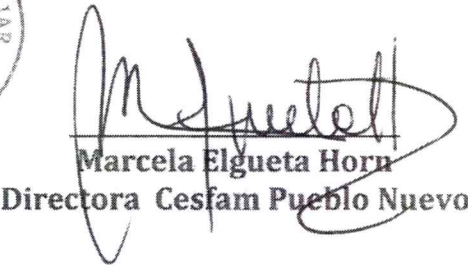 Marcela Elgueta Horn
Directora Cesfam Pueblo Nuevo